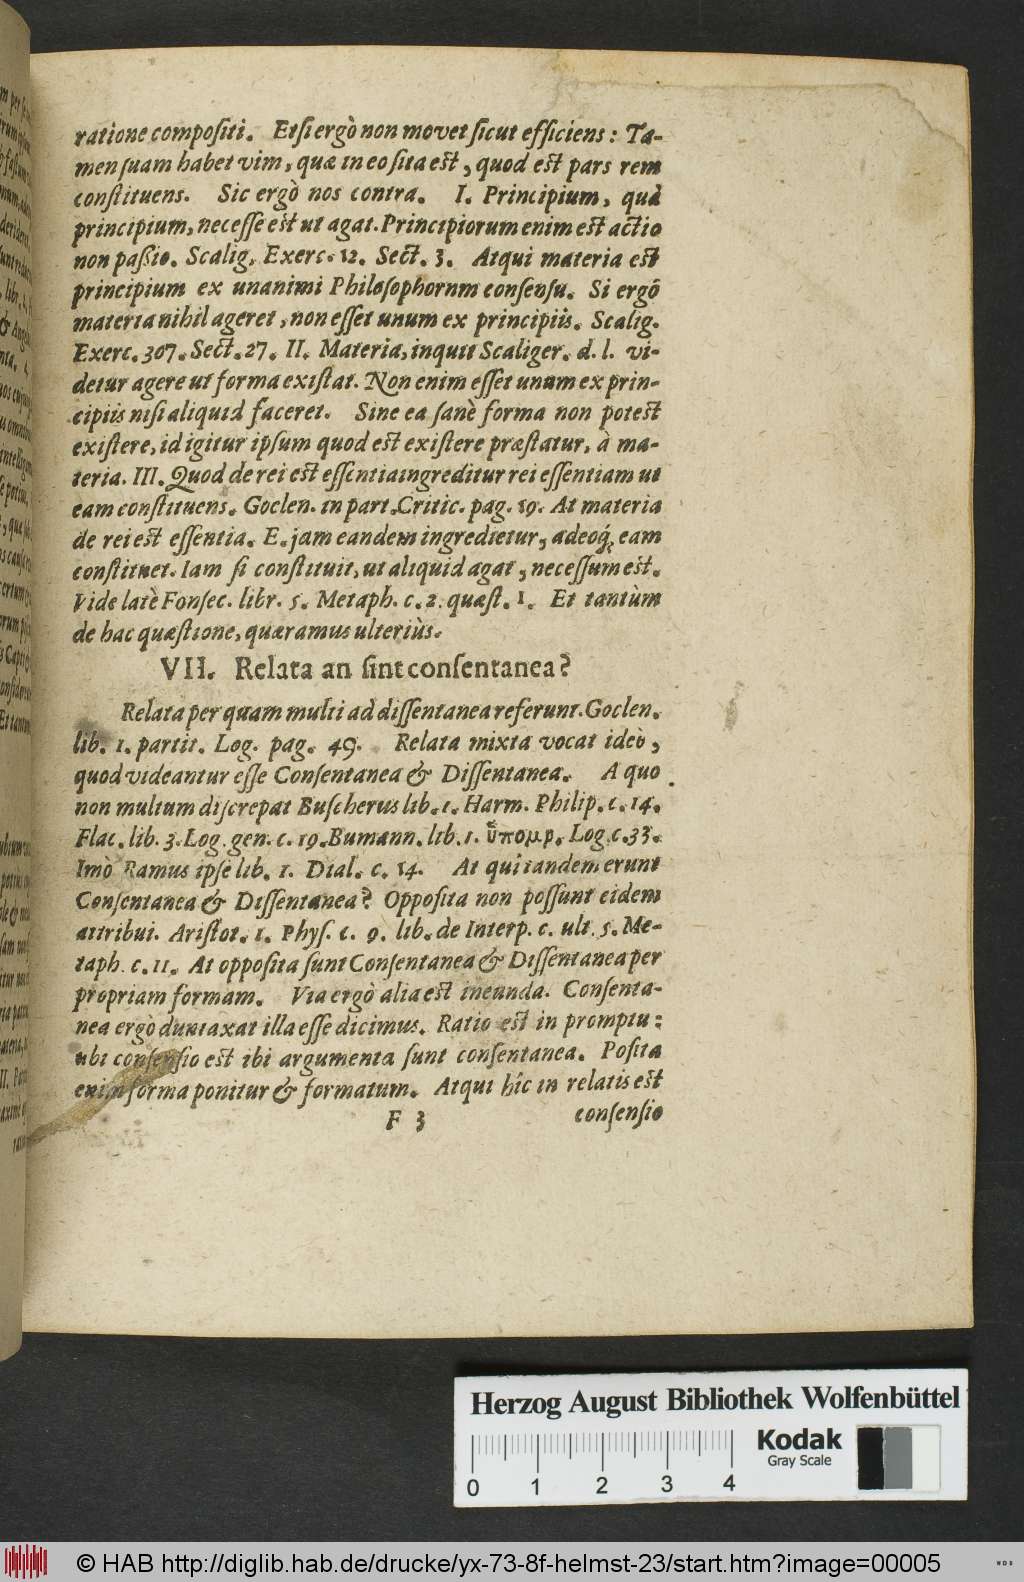 ratione compositi. Etsi ergò non movet sicut efficiens: Ta-
men suam habet vim, quæ in eo sita est, quod est pars rem
constituens. Sic ergò nos contra. I. Principium, quà
principium, necesse est ut agat. Principiorum enim est actio
non passio. Scalig. Exerc. 12. Sect. 3. Atqui materia est
principium ex unanimi Philosophornm consensu. Si ergó
materia nihil ageret, non esset unum ex principiis. Scalig.
Exerc. 307. Sect. 27. II. Materia, inquit Scaliger. d. l. vi-
detur agere ut forma existat. Non enim esset unum ex prin-
cipiis nisi aliquid faceret. Sine ea sanè forma non potest
existere, id igitur ipsum quod est existere præstatur, à ma-
teria. III. Quod de rei est essentia ingreditur rei essentiam ut
eam constituens. Goclen. in part. Critic. pag. 19. At materia
de rei est essentia. E. jam eandem ingredietur, adeoq́; eam
constituet. Iam si constituit, ut aliquid agat, necessum est.
Vide latè Fonsec. libr. 5. Metaph. c. 2. quæst. 1. Et tantùm
de hac quæstione, quæramus ulteriùs.
VII. Relata an sint consentanea?
Relata per quam multi ad dissentanea referunt. Goclen.
lib. 1. partit. Log. pag. 49. Relata mixta vocat ideò,
quod videantur esse Consentanea & Dissentanea. A quo
non multum discrepat Buscherus lib. 1. Harm. Philip. c. 14.
Flac. lib. 3. Log. gen. c. 19. Bumann. lib. 1. ὑπομρ. Log. c. 33.
Imò Ramus ipse lib. 1. Dial. c. 14. At qui tandem erunt
Consentanea & Dissentanea? Opposita non possunt eidem
attribui. Aristot. 1. Phys. c. 9. lib. dè Interp. c. ult. 5. Me-
taph. c. 11. At opposita sunt Consentanea & Dissentanea per
propriam formam. Via ergò alia est ineunda. Consenta-
nea ergò duntaxat illa esse dicimus. Ratio est in promptu:
ubi consensio est ibi argumenta sunt consentanea. Posita
enim forma ponitur & formatum. Atqui hîc in relatis est
F 3 consensio
Herzog August Bibliothek Wolfenbüttel
Kodak
Gray Scale
0 1 2 3 4
© HAB http://diglib.hab.de/drucke/yx-73-8f-helmst-23/start.htm?image=00005